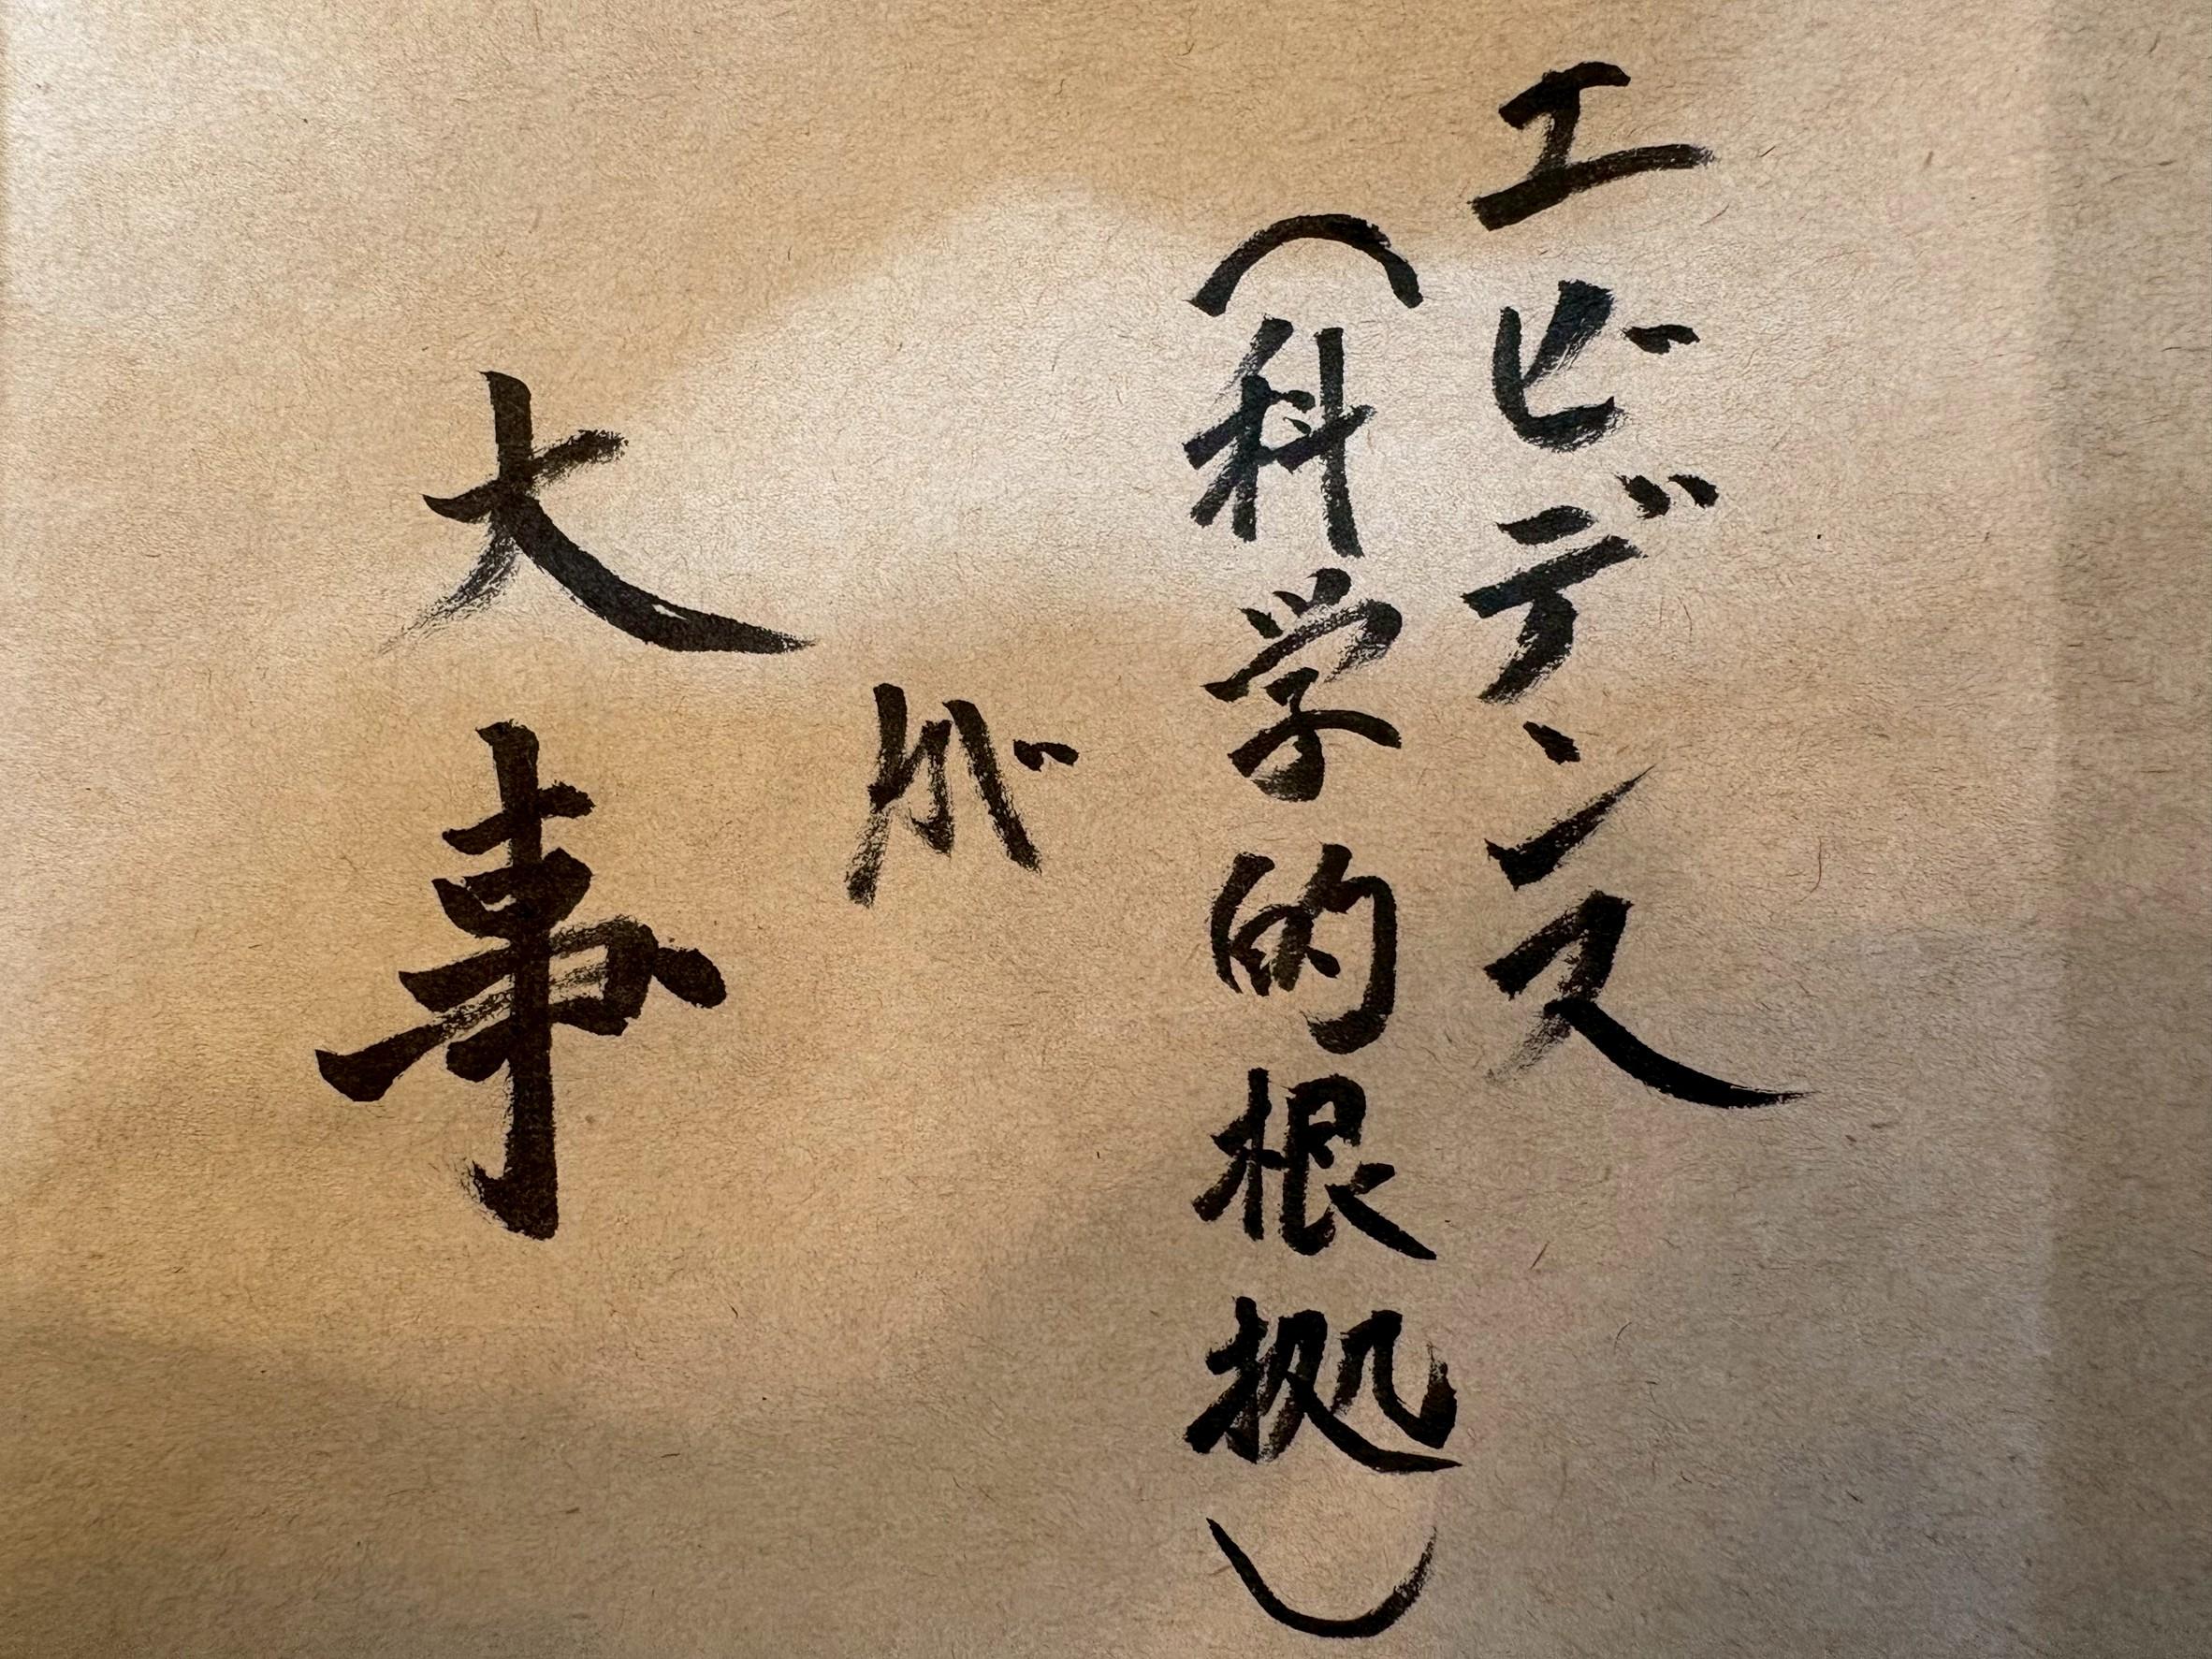 エビデンス
（科学的根拠）
が
大事